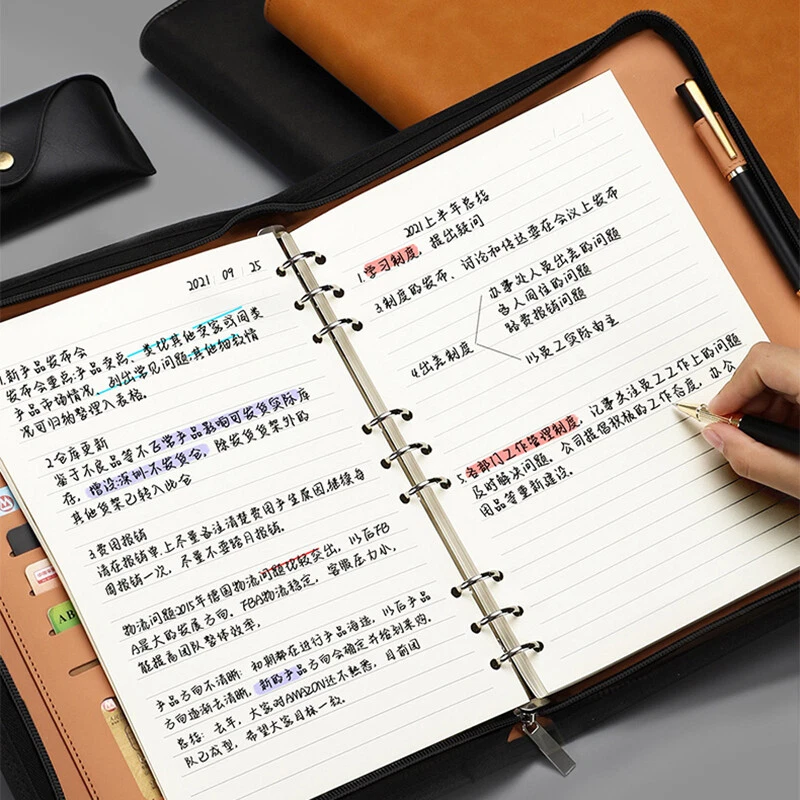 2021 09 25
1.新产品发布会
发布会重点:产品卖点、类比其他卖家或同类
产品市场情况、列出常见问题,其他细致情
况可归纳整理入表格。
2仓库更新
鉴于不良品等不合常产品影响可发货实际库
存,增设:深圳-不发货仓,除发货货架外的
其他货架已转入此仓
3.费用报销
请在报销单上尽量备注清楚费用产生原因,继续每
周报销一次,尽量不要跨月报销。
物流问题2015年德国物流问题比较突出,以后FB
A是大的发展方向,FBA物流稳定,客服压力小,
能提高团队整体效率,
产品方向不清晰:初期都在进行产品海选,以后产品
方向逐渐去清晰,新的产品方向会确定并给到采购,
总结:去年,大家对AMAZON还不熟悉,目前团
队已成型,希望大家目标一致。
2021上半年总结
1.学习制度,提出疑问
3.制度的发布、讨论和传达要在会议上发布
4.出差制度
办事处人员出差的问题
各人间住的问题
路费报销问题
以员工实际由主
5.各部门工作管理制度,记事关注员工工作上的问题
及时解决问题,公司提倡积极的工作态度,办公
用品等重新建设。
AB